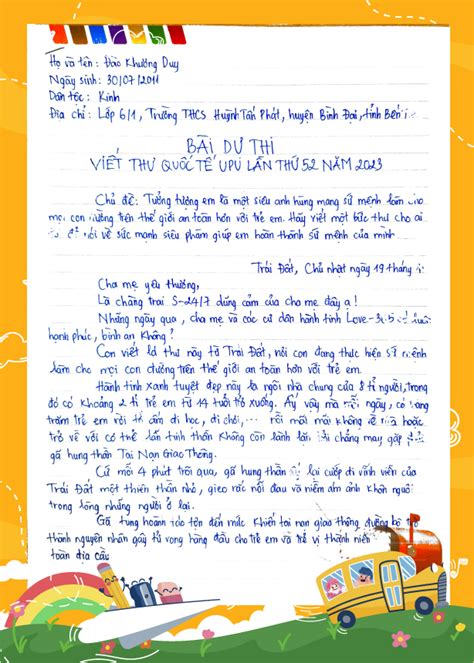 Họ và tên : Đào Khương Duy
Ngày sinh : 30/07/2011
Dân tộc : Kinh
Địa chỉ : Lớp 6/1, Trường THCS Huỳnh Tấn Phát, huyện Bình Đại, tỉnh Bến
BÀI DỰ THI
VIẾT THƯ QUỐC TẾ UPU LẦN THỨ 52 NĂM 2023
Chủ đề: Tưởng tượng em là một siêu anh hùng mang sứ mệnh làm cho
mọi con đường trên thế giới an toàn hơn với trẻ em. Hãy viết một bức thư cho ai
đó để nói về sức mạnh siêu phàm giúp em hoàn thành sứ mệnh của mình
Trái Đất, Chủ nhật ngày 19 tháng
Cha mẹ yêu thương,
Là chàng trai S-24/7 dũng cảm của cha mẹ đây ạ!
Những ngày qua, cha mẹ và các cư dân hành tinh Love-
hạnh phúc, bình an không?
Con viết lá thư này từ Trái Đất, nơi con đang thực hiện sứ mệnh
làm cho mọi con đường trên thế giới an toàn hơn với trẻ em.
Hành tinh xanh tuyệt đẹp này là ngôi nhà chung của 8 tỉ người, trong
đó có khoảng 2 tỉ trẻ em từ 14 tuổi trở xuống. Ấy vậy mà mỗi ngày, có hàng
trăm trẻ em rời tổ ấm đi học, đi chơi, ... rồi mãi mãi không về nữa hoặc
trở về với cơ thể lẫn tinh thần không còn lành lặn vì chẳng may gặp
gã hung thần Tai Nạn Giao Thông.
Cứ mỗi 4 phút trôi qua, gã hung thần ấy lại cướp đi vĩnh viễn của
Trái Đất một thiên thần nhỏ, gieo rắc nỗi đau và niềm ám ảnh khôn nguôi
trong lòng những người ở lại.
Gã tung hoành tàn tệ đến mức khiến tai nạn giao thông đường bộ trở
thành nguyên nhân gây tử vong hàng đầu cho trẻ em và trẻ vị thành niên
toàn địa cầu